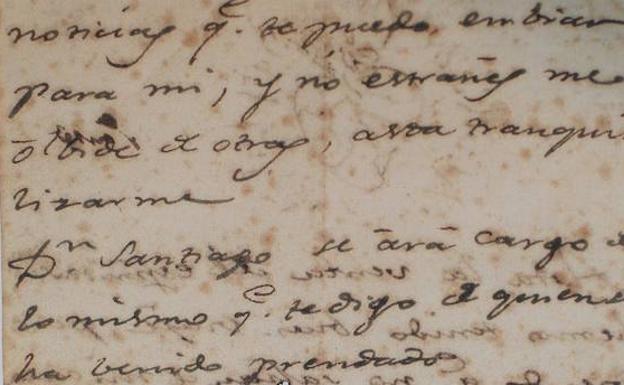 noticias q.e te puedo embiar
para mi, y nó estrañes me
ólbide de otras, asta tranqui
lizarme
Dn Santiago se ará cargo d
lo mismo q.e te digo de quien e
ha benido prendado